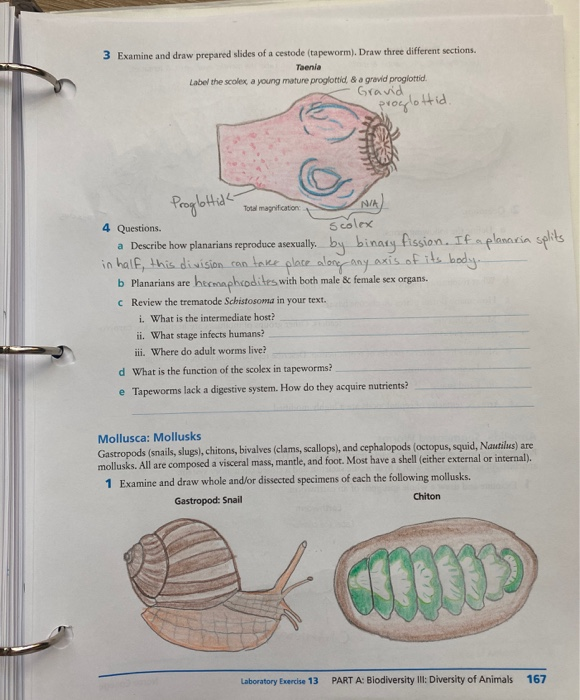 3 Examine and draw prepared slides of a cestode (tapeworm). Draw three different sections.
Taenia
Label the scolex, a young mature proglottid, & a gravid proglottid.
Gravid
proglottid.
Proglottid
Total magnification:
N/A
scolex
4 Questions.
a Describe how planarians reproduce asexually. by binary fission. If a planaria splits
in half, this division can take place along any axis of its body.
b Planarians are hermaphrodites with both male & female sex organs.
c Review the trematode Schistosoma in your text.
i. What is the intermediate host?
ii. What stage infects humans?
iii. Where do adult worms live?
d What is the function of the scolex in tapeworms?
e Tapeworms lack a digestive system. How do they acquire nutrients?
Mollusca: Mollusks
Gastropods (snails, slugs), chitons, bivalves (clams, scallops), and cephalopods (octopus, squid, Nautilus) are
mollusks. All are composed a visceral mass, mantle, and foot. Most have a shell (either external or internal).
1 Examine and draw whole and/or dissected specimens of each the following mollusks.
Gastropod: Snail
Chiton
Laboratory Exercise 13 PART A: Biodiversity III: Diversity of Animals 167